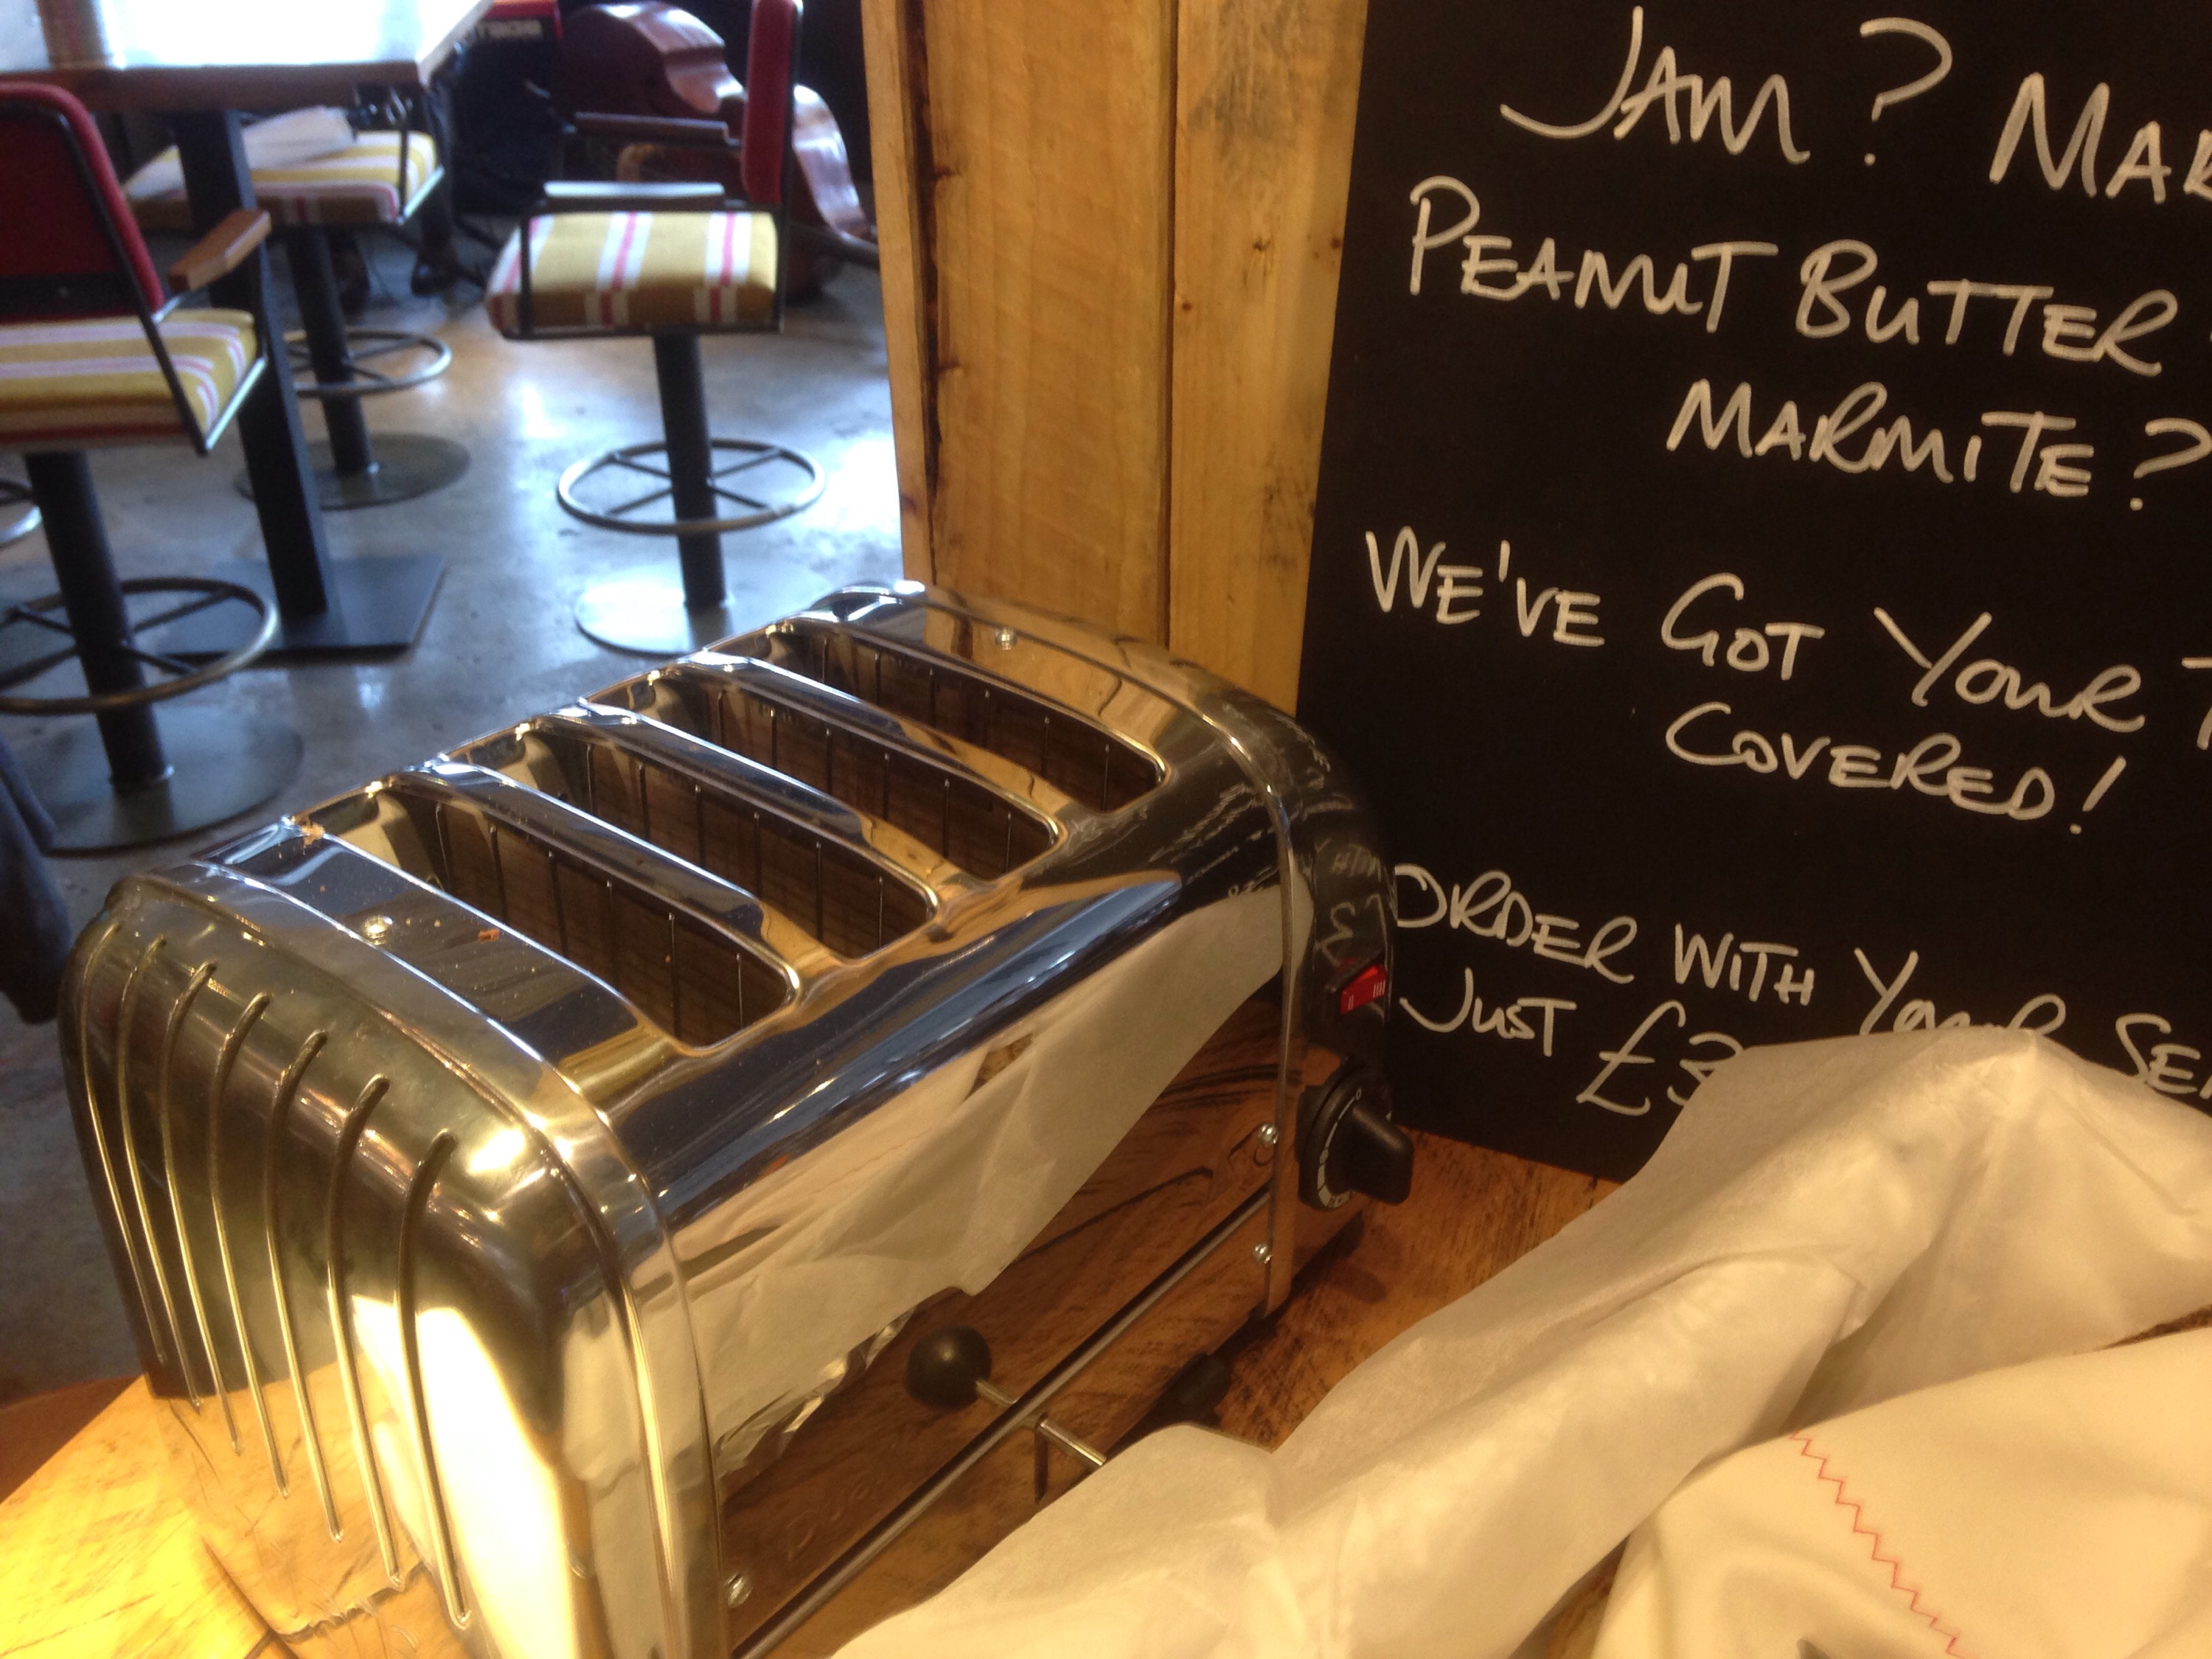 JAM? MAR
PEANUT BUTTER
MARMITE?
WE'VE GOT YOUR T
COVERED!
ORDER WITH YOUR SE
JUST £3